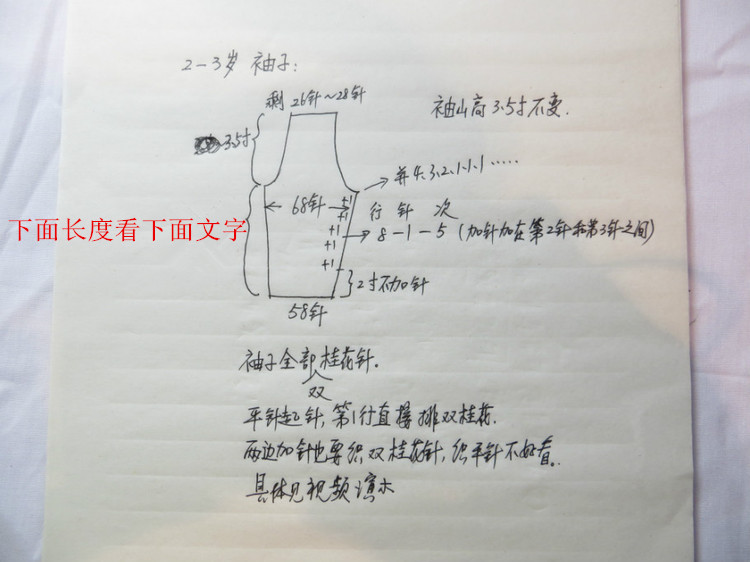 2-3岁 袖子:
剩26针~28针
袖山高3.5寸不变.
3.5寸
并4.3.2.1.1.1……
68针
+1
+1
行 针 次
下面长度看下面文字
+1
8-1-5 (加针加在第2针和第3针之间)
+1
+1
2寸不加针
58针
袖子全部双桂花针.
平针起针, 第1行直接排双桂花.
两边加针也要织双桂花针, 织平针不好看。
具体见视频演示